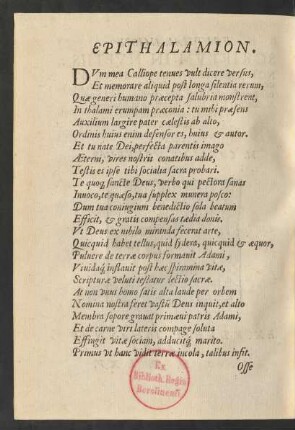 EPITHALAMION.
DVm mea Calliope tenues vult dicere versus,
Et memorare aliquid post longa silentia rerum,
Quæ generi humano præcepta salubria monstrent,
In thalami erumpam præconia: tu mihi præsens
Auxilium largire pater cælestis ab alto,
Ordinis huius enim defensor es, huius & autor.
Et tu nate Dei, perfecta parentis imago
Æterni, vires nostris conatibus adde,
Testis es ipse tibi socialia sacra probari.
Te quoq, sancte Deus, verbo qui pectora sanas
Inuoco, te quæso, tua supplex munera posco:
Dum tua coniugium benedictio sola beatum
Efficit, & gratis compensas tædia donis.
Vt Deus ex nihilo miranda fecerat arte,
Quicquid habet tellus, quid sydera, quicquid & æquor,
Puluere de terræ corpus formauit Adami,
Viuidaq́ instauit post hæc spiramina vitæ,
Scripturæ veluti testatur lectio sacræ.
At non vnus homo satis alta laude per orbem
Nomina nostra feret vastũ Deus inquit, et alto
Membra sopore grauat primæui patris Adami,
Et de carne viri lateris compage soluta
Effingit vitæ sociam, adducitq́ marito.
Primus vt hanc vidit terræ incola, talibus infit.
Osse
Ex
Biblioth. Regia
Berolinensi